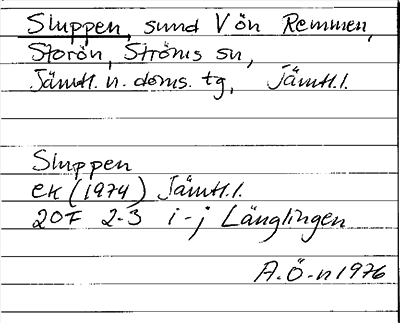 Sluppen, sund V ön Remmen,
Storön, Ströms sn,
Jämtl. n. doms. tg, Jämtl. l.
Sluppen
ek (1974) Jämtl. l.
20F 2-3 i-j Länglingen
A.Ö-n 1976